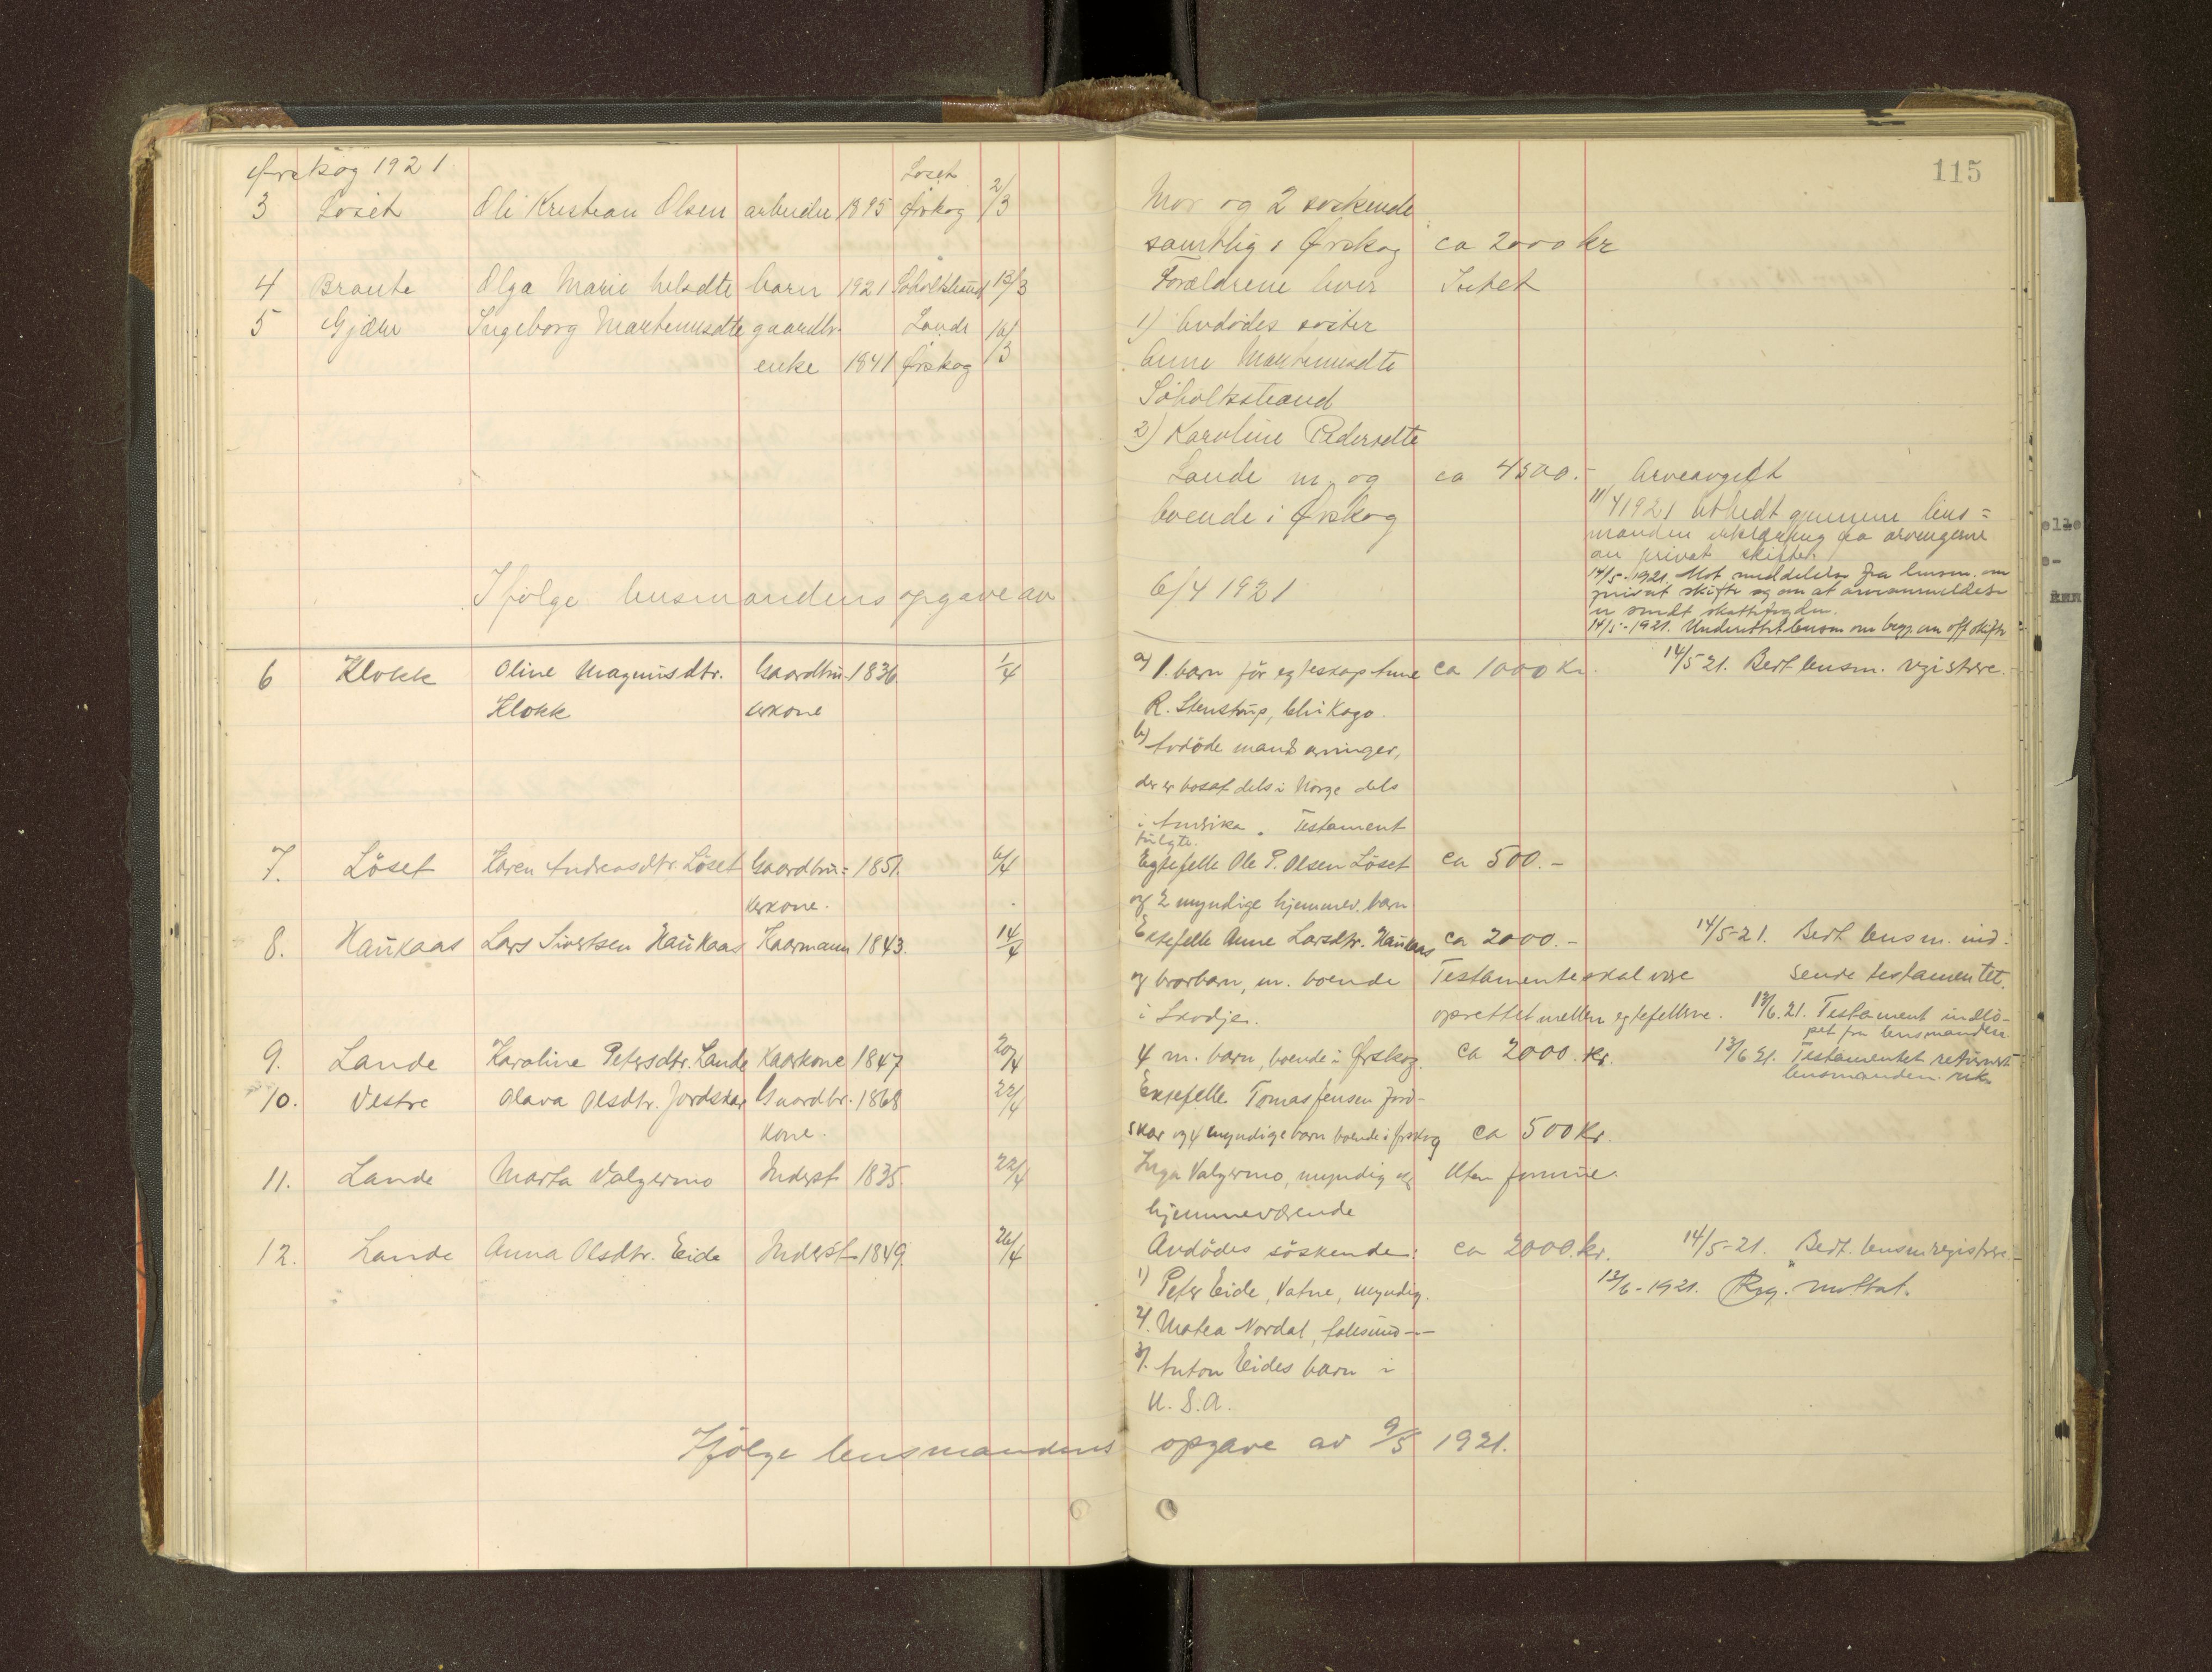 115
Ørskog 1921
Løset
3 Løset Ole Kristian Olsen arbeider 1895 Ørskog 2/3 Mor og 2 søskende
samtlig i Ørskog ca 2000 kr
4 Braute Olga Marie barn 1921 Søholtstrand 13/3 Forældrene lever Intet
5 Gjære Ingeborg Martinusdtr gaardbr. Lande 16/3 1) Avdødes søster
enke 1841 Ørskog Anne Martinusdtr
Søholtstrand
2) Karoline Pedersdtr
Lande m. og ca 4500.- Arveavgift
boende i Ørskog
11/4 1921 Utbedt gjennem lens=
manden erklæring fra arvingerne
om privat skifte.
14/5-1921. Mot. meddelelse fra lensm. om
privat skifte og om at arveanmeldelse
er sendt skattefogden.
14/5-1921. Underrettet lensm om begj. om off skifte
Ifølge lensmandens opgave av 6/4 1921
6 Klokk Oline Magnusdtr. Gaardbru- 1836. 1/4 a) 1. barn før egteskap Anne ca 1000 Kr. 14/5 21. Bedt lensm. registrere.
Klokk kerkone R. Stenstrup, Chikago.
b) Avdøde mands arvinger,
der er bosat dels i Norge dels
i Amerika. Testament
følgte.
7. Löset Karen Andreasdtr. Löset Gaardbru= 1851. 6/4 Egtefelle Ole P. Olsen Löset ca 500.-
kerkone. og 2 myndige hjemmev. barn
8. Haukaas Lars Sivertsen Haukaas Kaarmann 1843. 14/4 Egtefelle Anne Larsdtr. Haukaas ca 2000.- 14/5-21. Bedt lensm. ind-
og brorbarn, m. boende Testamente skal være sende testamentet.
i Skodje. oprettet mellem egtefellerne. 13/6.21. Testament indlø-
pet fra lensmanden
9. Lande Karoline Petersdtr. Lande Kaarkone 1847 20/4 4 m. barn, boende i Ørskog. ca 2000. Kr. 13/6 21. Testamentet returnert
lensmanden. rek.
10. Vestre Olava Olsdtr. Jordskar Gaardbr. 1868 22/4 Egtefelle Tomas Jensen Jord-
kone. skar og 4 myndige barn boende i Ørskog ca 500 Kr.
11. Lande Marta Valgermo Inderst 1835. 22/4 Inga Valgermo, myndig og Uten formue.
hjemmeværende
12. Lande Anna Olsdtr. Eide Inderst 1849. 26/4 Avdødes söskende: ca 2000. kr. 14/5-21. Bedt. lensm registrere.
1) Peter Eide, Vatne, myndig. 13/6-1921. Reg. mottat.
2). Matea Nordal, Aalesund -"-
3). Anton Eides barn i
U.S.A.
Ifølge lensmandens opgave av 9/5 1921.